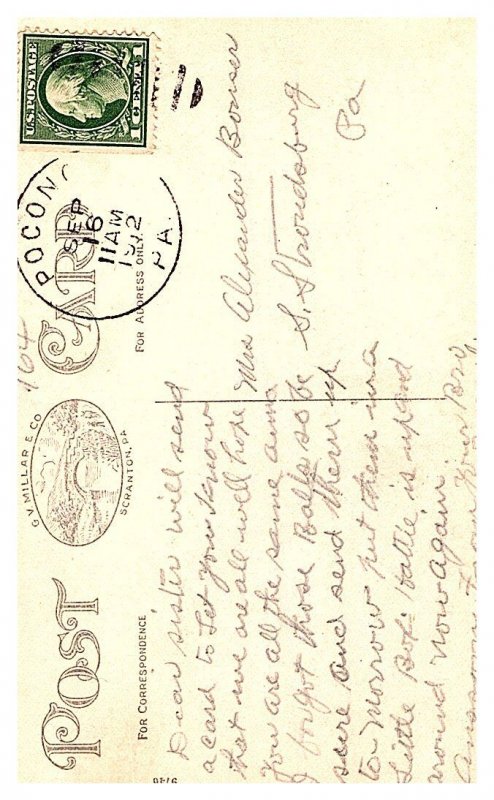 U.S. POSTAGE
1 CENT 1
POCONO
SEP
16
11 AM
1912
PA.
164
POST CARD
G.V. MILLAR & CO
SCRANTON, PA.
FOR CORRESPONDENCE
FOR ADDRESS ONLY.
Dear sister will send
a card to let you know
that we are all well hope
you are all the same anna
I forgot those Balls so be
sure and send them up
to-Morrow put them in a
Little Box Hattie is up and
around now again
answer From your Bro,
Mrs Alexander Bonser
S. Stroudsburg
Pa